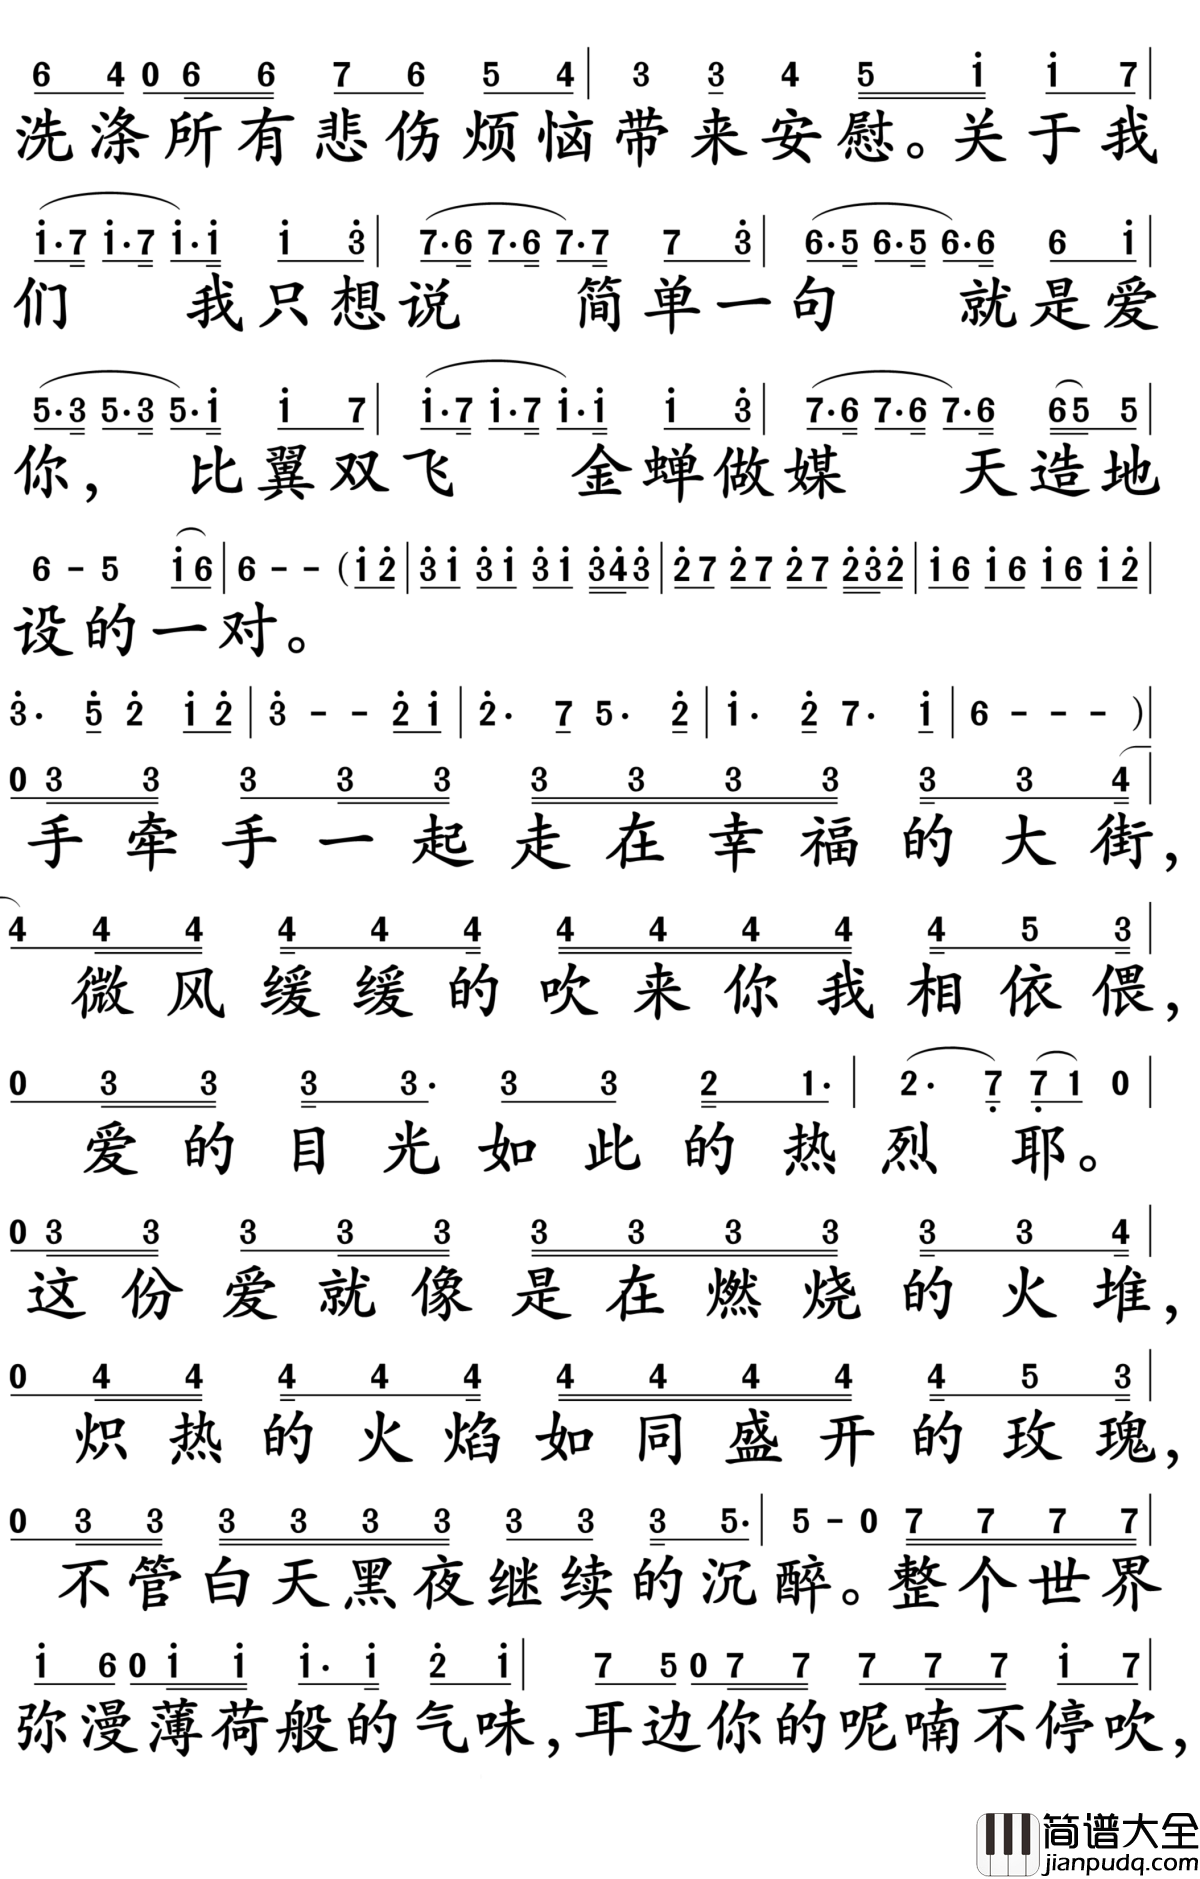 6 4 0 6 6 7 6 5 4 | 3 3 4 5 i i 7 |
洗涤所有悲伤烦恼带来安慰。关于我
i·7 i·7 i·i i 3̇ | 7·6 7·6 7·7 7 3̇ | 6·5 6·5 6·6 6 i |
们 我只想说 简单一句 就是爱
5·3 5·3 5·i i 7 | i·7 i·7 i·i i 3̇ | 7·6 7·6 7·6 65 5 |
你, 比翼双飞 金蝉做媒 天造地
6 - 5 i6 | 6 - - (i2̇ | 3̇i 3̇i 3̇i 3̇4̇3̇ | 2̇7 2̇7 2̇7 2̇3̇2̇ | i6 i6 i6 i2̇ |
设的一对。
3̇· 5̇ 2̇ i2̇ | 3̇ - - 2̇i | 2̇· 7 5· 2̇ | i· 2̇ 7· i | 6 - - - ) |
0 3 3 3 3 3 3 3 3 3 3 3 4 |
手牵手一起走在幸福的大街,
4 4 4 4 4 4 4 4 4 4 4 5 3 |
微风缓缓的吹来你我相依偎,
0 3 3 3 3· 3 3 2 1· | 2· 7̣ 7̣1 0 |
爱的目光如此的热烈 耶。
0 3 3 3 3 3 3 3 3 3 3 3 4 |
这份爱就像是在燃烧的火堆,
0 4 4 4 4 4 4 4 4 4 4 5 3 |
炽热的火焰如同盛开的玫瑰,
0 3 3 3 3 3 3 3 3 3 5· | 5 - 0 7 7 7 7 |
不管白天黑夜继续的沉醉。整个世界
i 6 0 i i i· i 2̇ i | 7 5 0 7 7 7 7 7 i 7 |
弥漫薄荷般的气味,耳边你的呢喃不停吹,
简谱大全
jianpudq.com